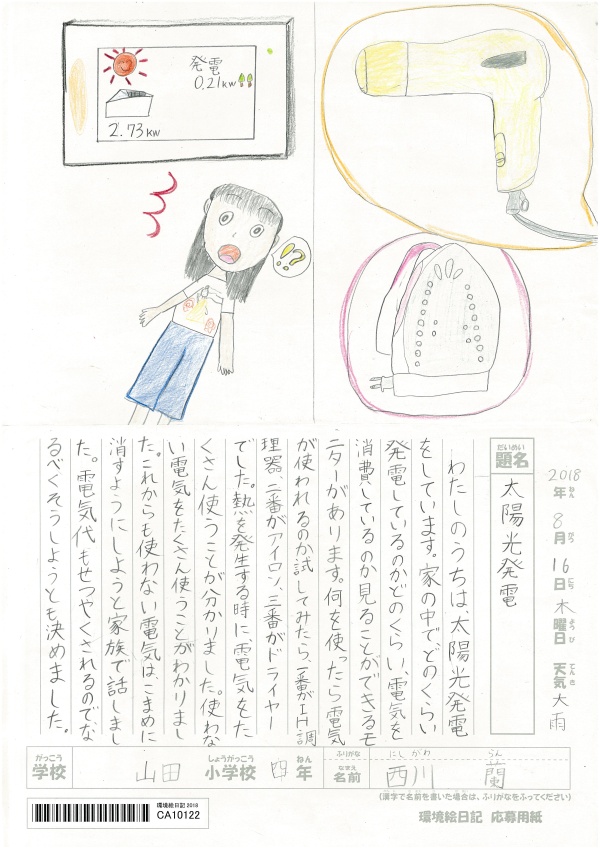 発電
0.21kw
2.73kw
!?
2018年8月16日木曜日 天気大雨
ねん がつ にち よう び てんき
だいめい
題名
太陽光発電
わたしのうちは、太陽光発電
をしています。家の中でどのくらい
発電しているのかどのくらい、電気を
消費しているのか見ることができるモ
ニターがあります。何を使ったら電気
が使われるのか試してみたら、一番がIH調
理器、二番がアイロン、三番がドライヤー
でした。熱を発生する時に電気をた
くさん使うことが分かりました。使わな
い電気をたくさん使うことがわかりまし
た。これからも使わない電気は、こまめに
消すようにしようと家族で話しまし
た。電気代もせつやくされるのでな
るべくそうしようとも決めました。
がっこう しょうがっこう ねん ふりがな にしがわ らん
学校 山田 小学校 四年 なまえ 名前 西川 蘭
(漢字で名前を書いた場合は、ふりがなをふってください)
環境絵日記 2018
CA10122
環境絵日記 応募用紙